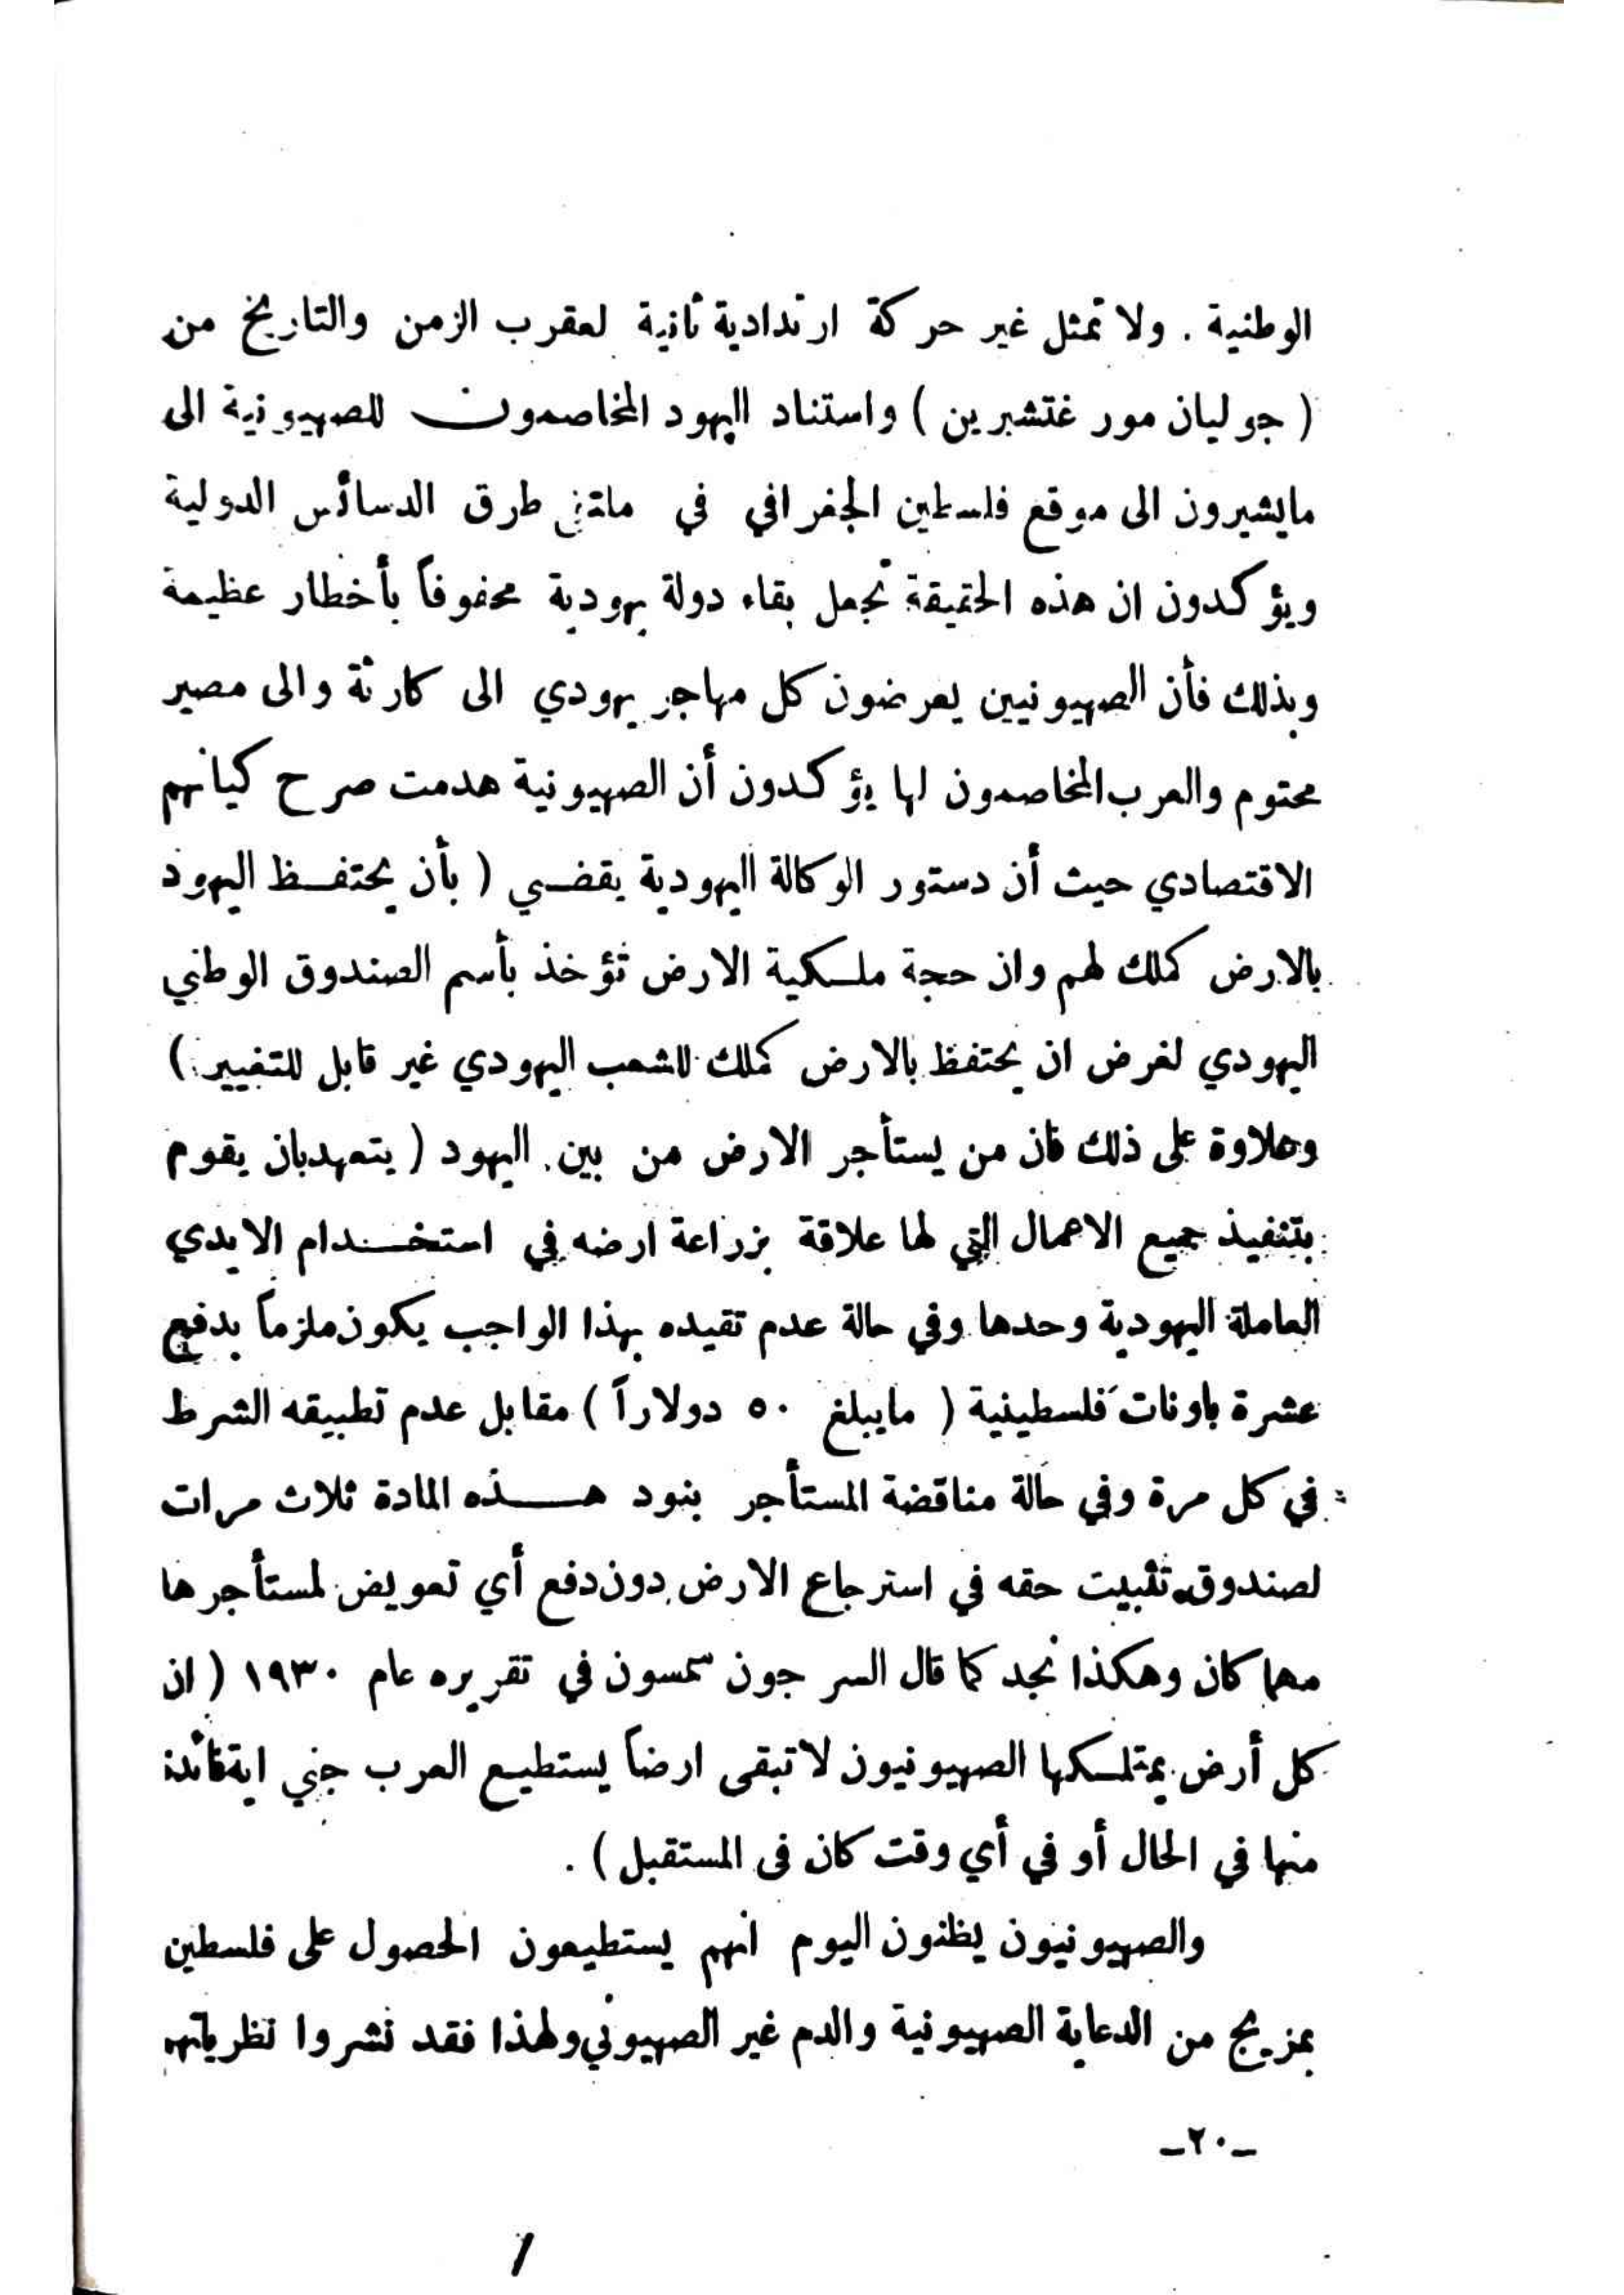 الوطنية . ولا تمثل غير حركة ارتدادية ثانية لعقرب الزمن والتاريخ من
( جوليان مور غتشبرين ) واستناد اليهود المخاصمون للصهيونية الى
مايشيرون الى موقع فلسطين الجغرافي في ملتقى طرق الدسائس الدولية
ويؤكدون ان هذه الحقيقة تجعل بقاء دولة يهودية محفوفاً بأخطار عظيمة
وبذلك فأن الصهيونيين يعرضون كل مهاجر يهودي الى كارثة والى مصير
محتوم والعرب المخاصمون لها يؤكدون أن الصهيونية هدمت صرح كيانهم
الاقتصادي حيث أن دستور الوكالة اليهودية يقضي ( بأن يحتفظ اليهود
بالارض كملك لهم وان حجة ملكية الارض تؤخذ بأسم الصندوق الوطني
اليهودي لغرض ان يحتفظ بالارض كملك للشعب اليهودي غير قابل للتغيير )
وعلاوة على ذلك فان من يستأجر الارض من بين اليهود ( يتعهد بان يقوم
بتنفيذ جميع الاعمال التي لها علاقة بزراعة ارضه في استخدام الايدي
العاملة اليهودية وحدها وفي حالة عدم تقيده بهذا الواجب يكون ملزماً بدفع
عشرة باونات فلسطينية ( مايبلغ ٥٠ دولاراً ) مقابل عدم تطبيقه الشرط
في كل مرة وفي حالة مناقضة المستأجر بنود هذه المادة ثلاث مرات
لصندوق تثبيت حقه في استرجاع الارض دون دفع أي تعويض لمستأجرها
مهما كان وهكذا نجد كما قال السر جون سمسون في تقريره عام ١٩٣٠ ( ان
كل أرض يمتلكها الصهيونيون لا تبقى ارضاً يستطيع العرب جني اية فائدة
منها في الحال أو في أي وقت كان فى المستقبل ) .
والصهيونيون يظنون اليوم انهم يستطيعون الحصول على فلسطين
بمزيج من الدعاية الصهيونية والدم غير الصهيوني ولهذا فقد نشروا نظرياتهم
ـ٢٠ـ